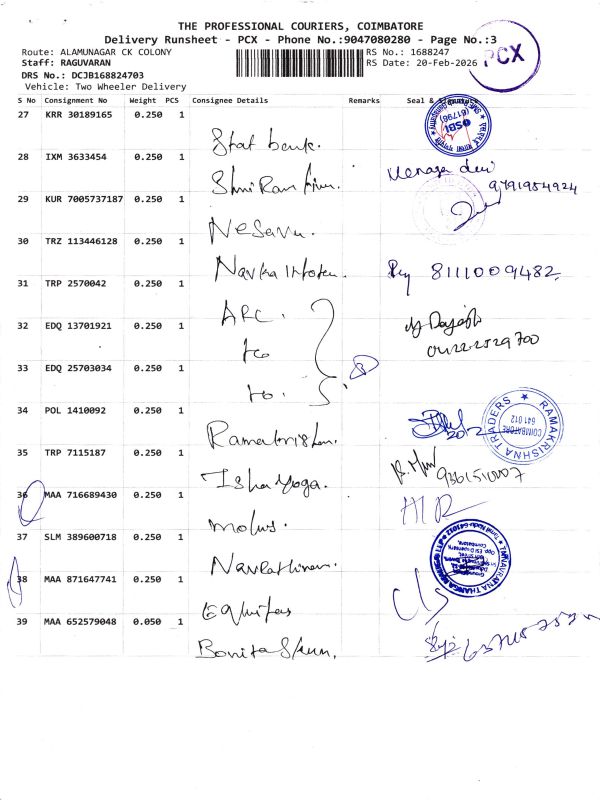 THE PROFESSIONAL COURIERS, COIMBATORE
Delivery Runsheet - PCX - Phone No.:9047080280 - Page No.:3
Route: ALAMUNAGAR CK COLONY
RS No.: 1688247
PCX
Staff: RAGUVARAN
RS Date: 20-Feb-2026
DRS No.: DCJB168824703
Vehicle: Two Wheeler Delivery
S No Consignment No Weight PCS Consignee Details Remarks Seal &
27 KRR 30189165 0.250 1
Stat bank.
28 IXM 3633454 0.250 1
Shri Ram
9791954924
29 KUR 7005737187 0.250 1
Nesavu.
30 TRZ 113446128 0.250 1
Navka Infotec. 8111009482
31 TRP 2570042 0.250 1
ARC.
32 EDQ 13701921 0.250 1
to
0422-2529700
33 EDQ 25703034 0.250 1
to.
34 POL 1410092 0.250 1
RAMAKRISHNA TRADERS
COIMBATORE
641 012
35 TRP 7115187 0.250 1
Isha yoga.
36 MAA 716689430 0.250 1
37 SLM 389600718 0.250 1
38 MAA 871647741 0.250 1
Equitas
39 MAA 652579048 0.050 1
Bonita